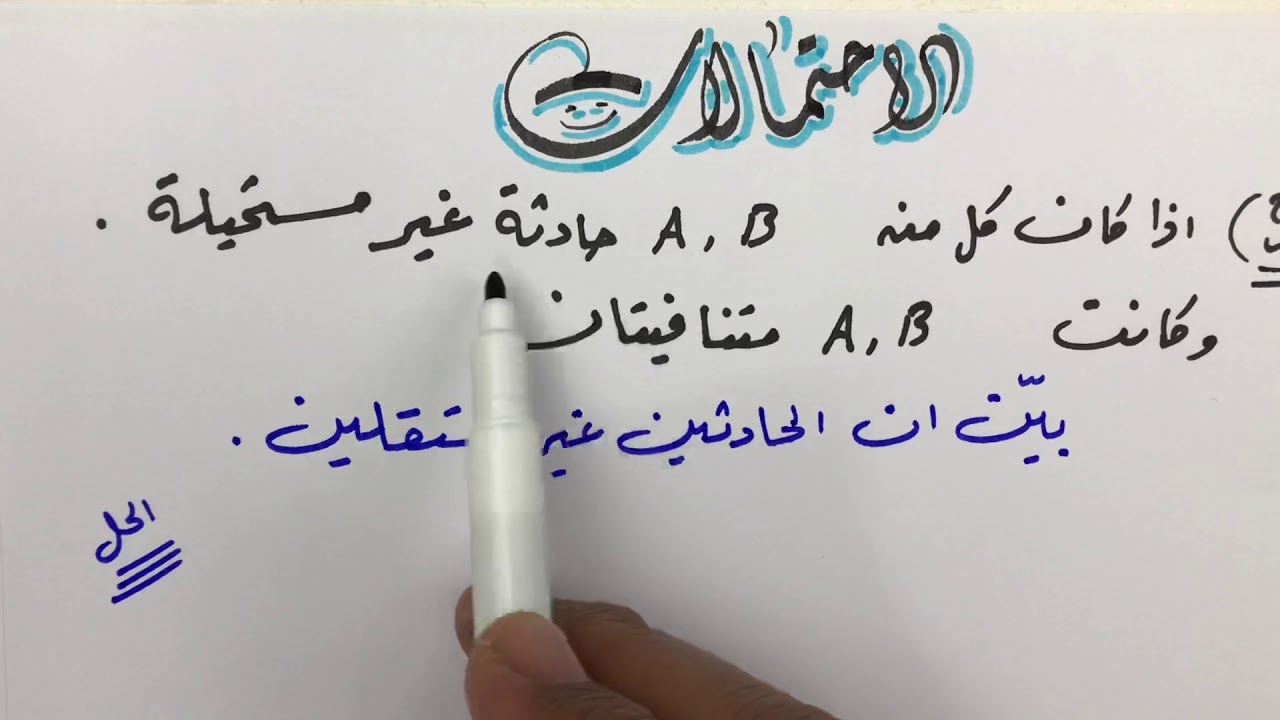 الاحتمالات
اذا كان كل من A , B حادثة غير مستحيلة .
وكانت A , B متنافيتان
بيّن ان الحادثين غير
الحل